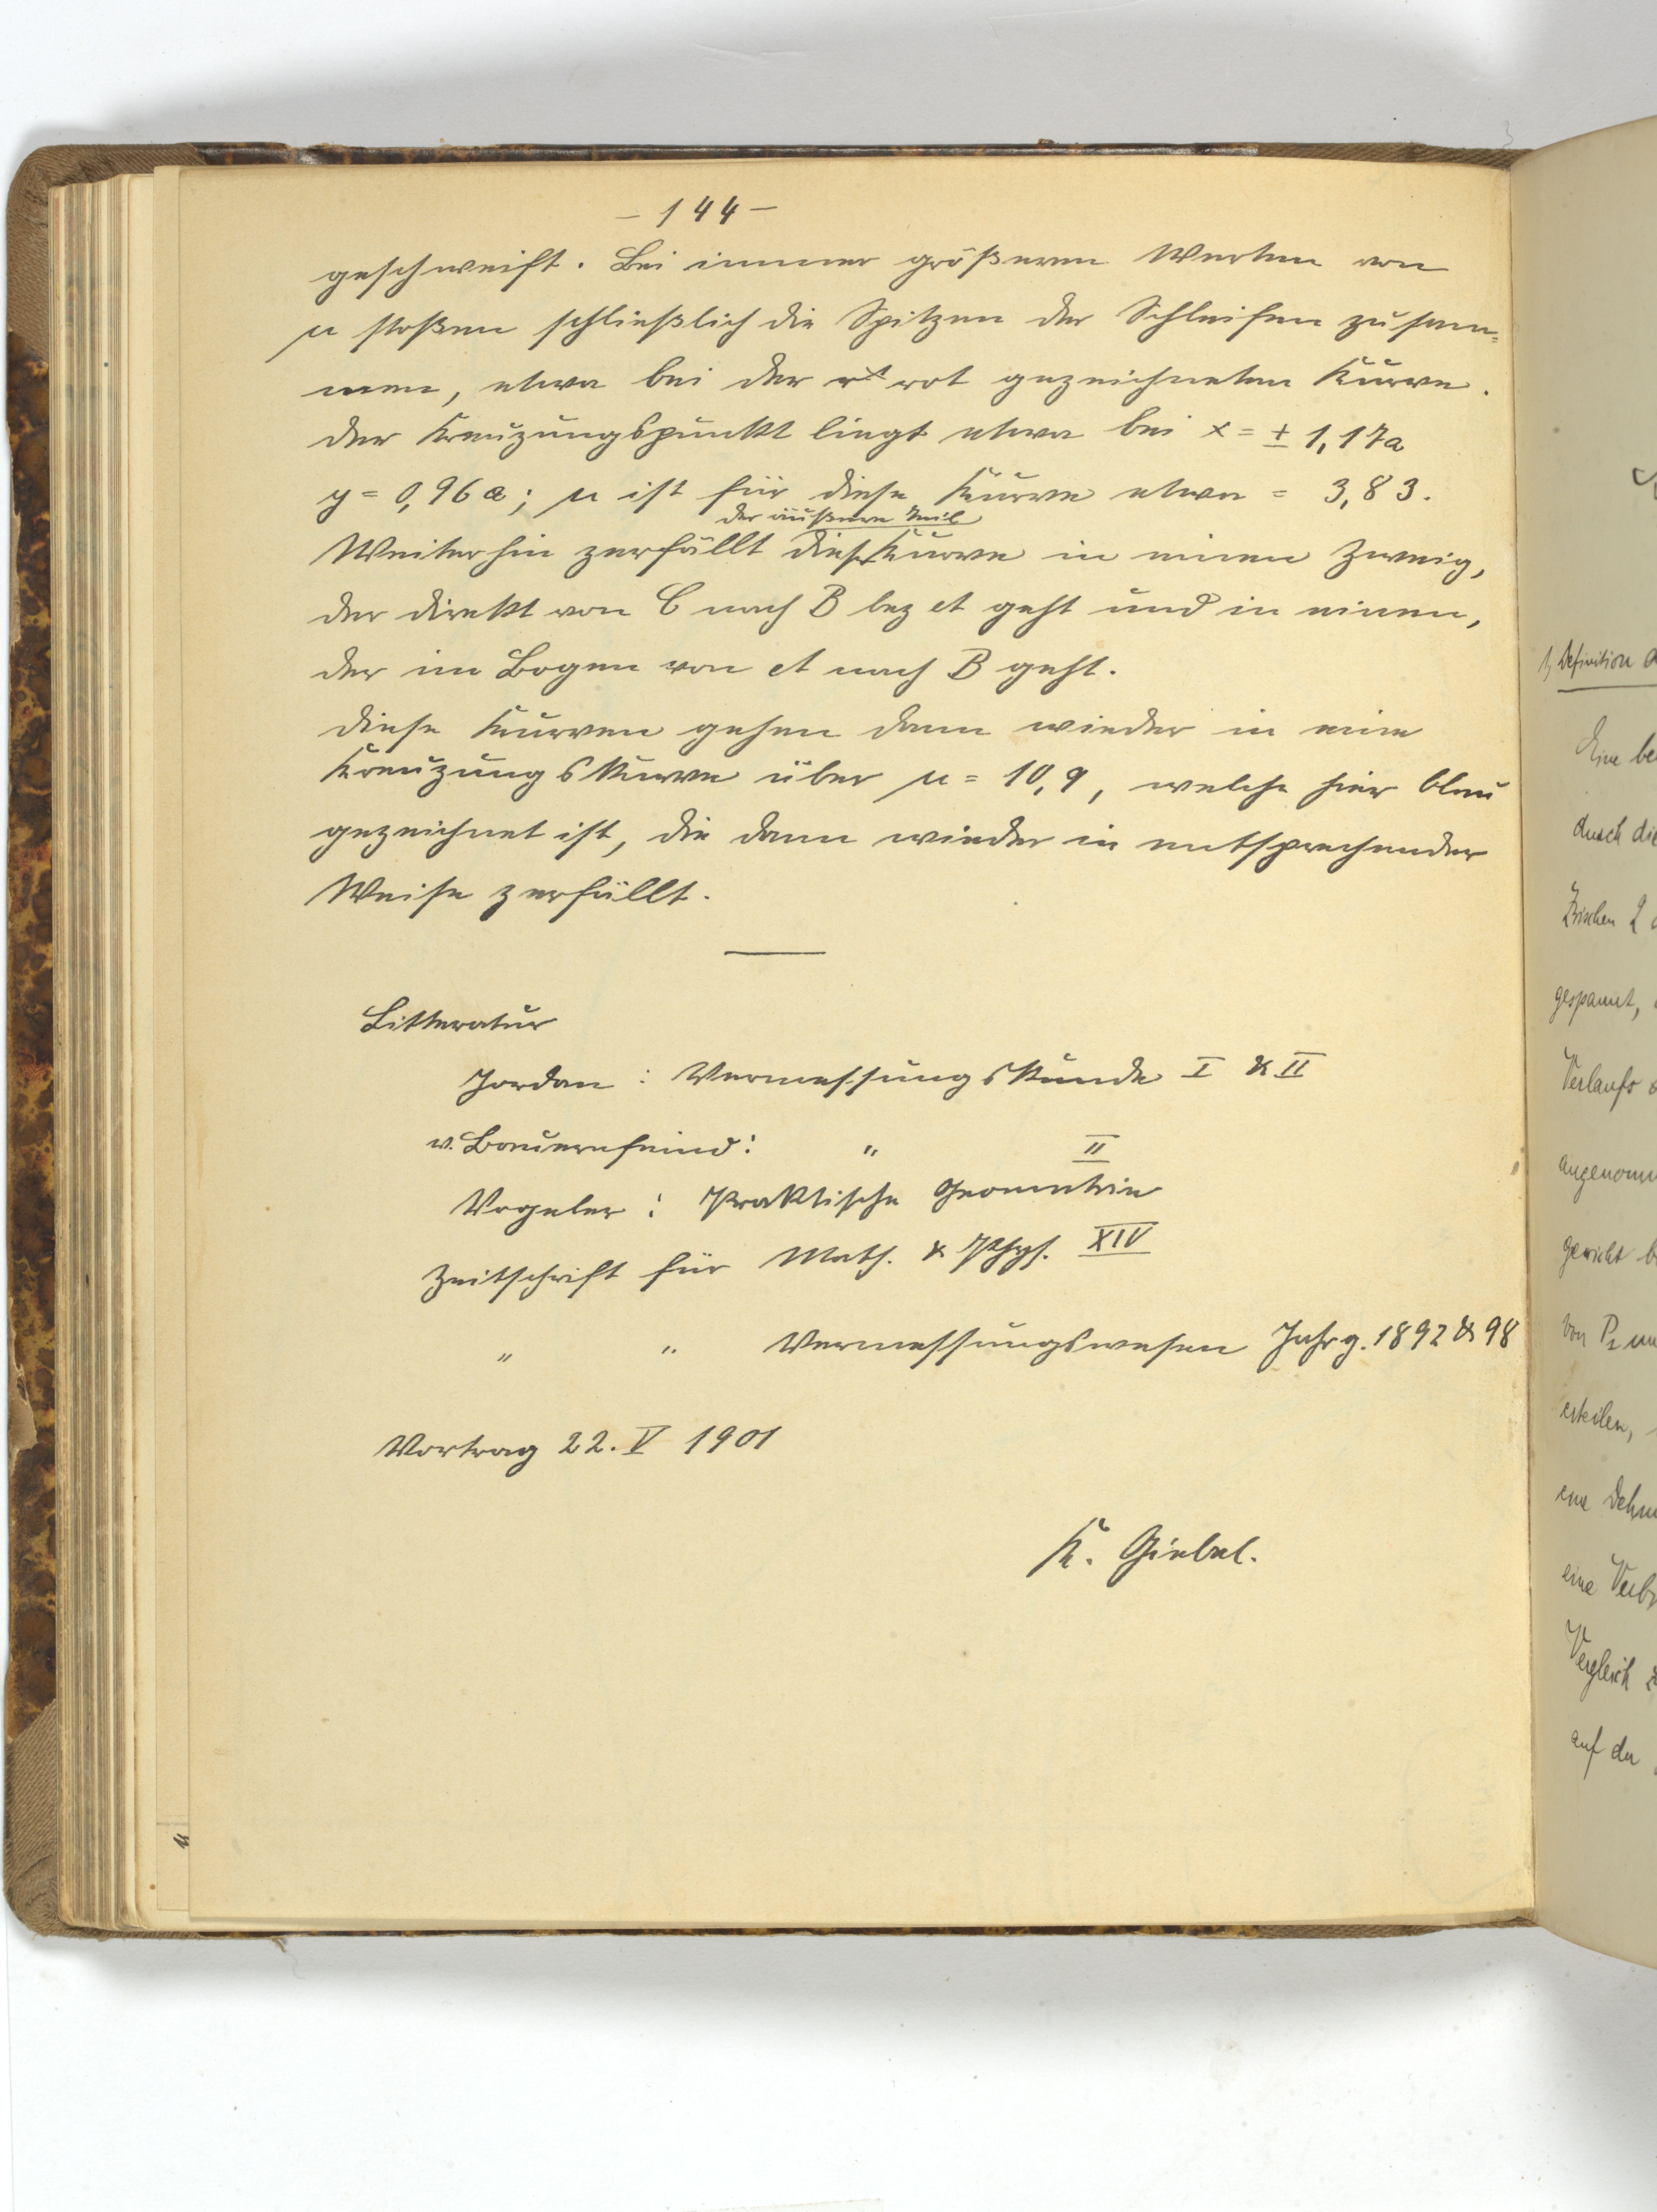 - 144 -
geschweift. Bei immer größeren Werten von
μ stoßen schließlich die Spitzen der Schleifen zusam=
men, etwa bei der rot gezeichneten Kurve.
Der Kreuzungspunkt liegt etwa bei x = ± 1,17a
y = 0,96a; μ ist für diese Kurve etwa = 3,83.
der äußere Teil
Weiterhin zerfällt dieser Kurve in einen Zweig,
der direkt von C nach B bez A geht und in einen,
der im Bogen von A nach B geht.
Diese Kurven gehen dann wieder in eine
Kreuzungskurve über μ = 10,9, welche hier blau
gezeichnet ist, die dann wieder in entsprechender
Weise zerfällt.
Litteratur
Jordan : Vermessungskunde I & II
v. Bauernfeind: " II
Vogeler : Praktische Geometrie
Zeitschrift für Math. & Phys. XIV
" " Vermessungswesen Jahrg. 1892 & 98
Vortrag 22. V 1901
K. Giebel.
1, Definition
Eine be
durch die
Zwischen 2
gespannt,
Verlaufs
angenomm
gewicht b
von P₂ un
erteilen,
eine Dehn
eine Verb
Vergleich
auf der